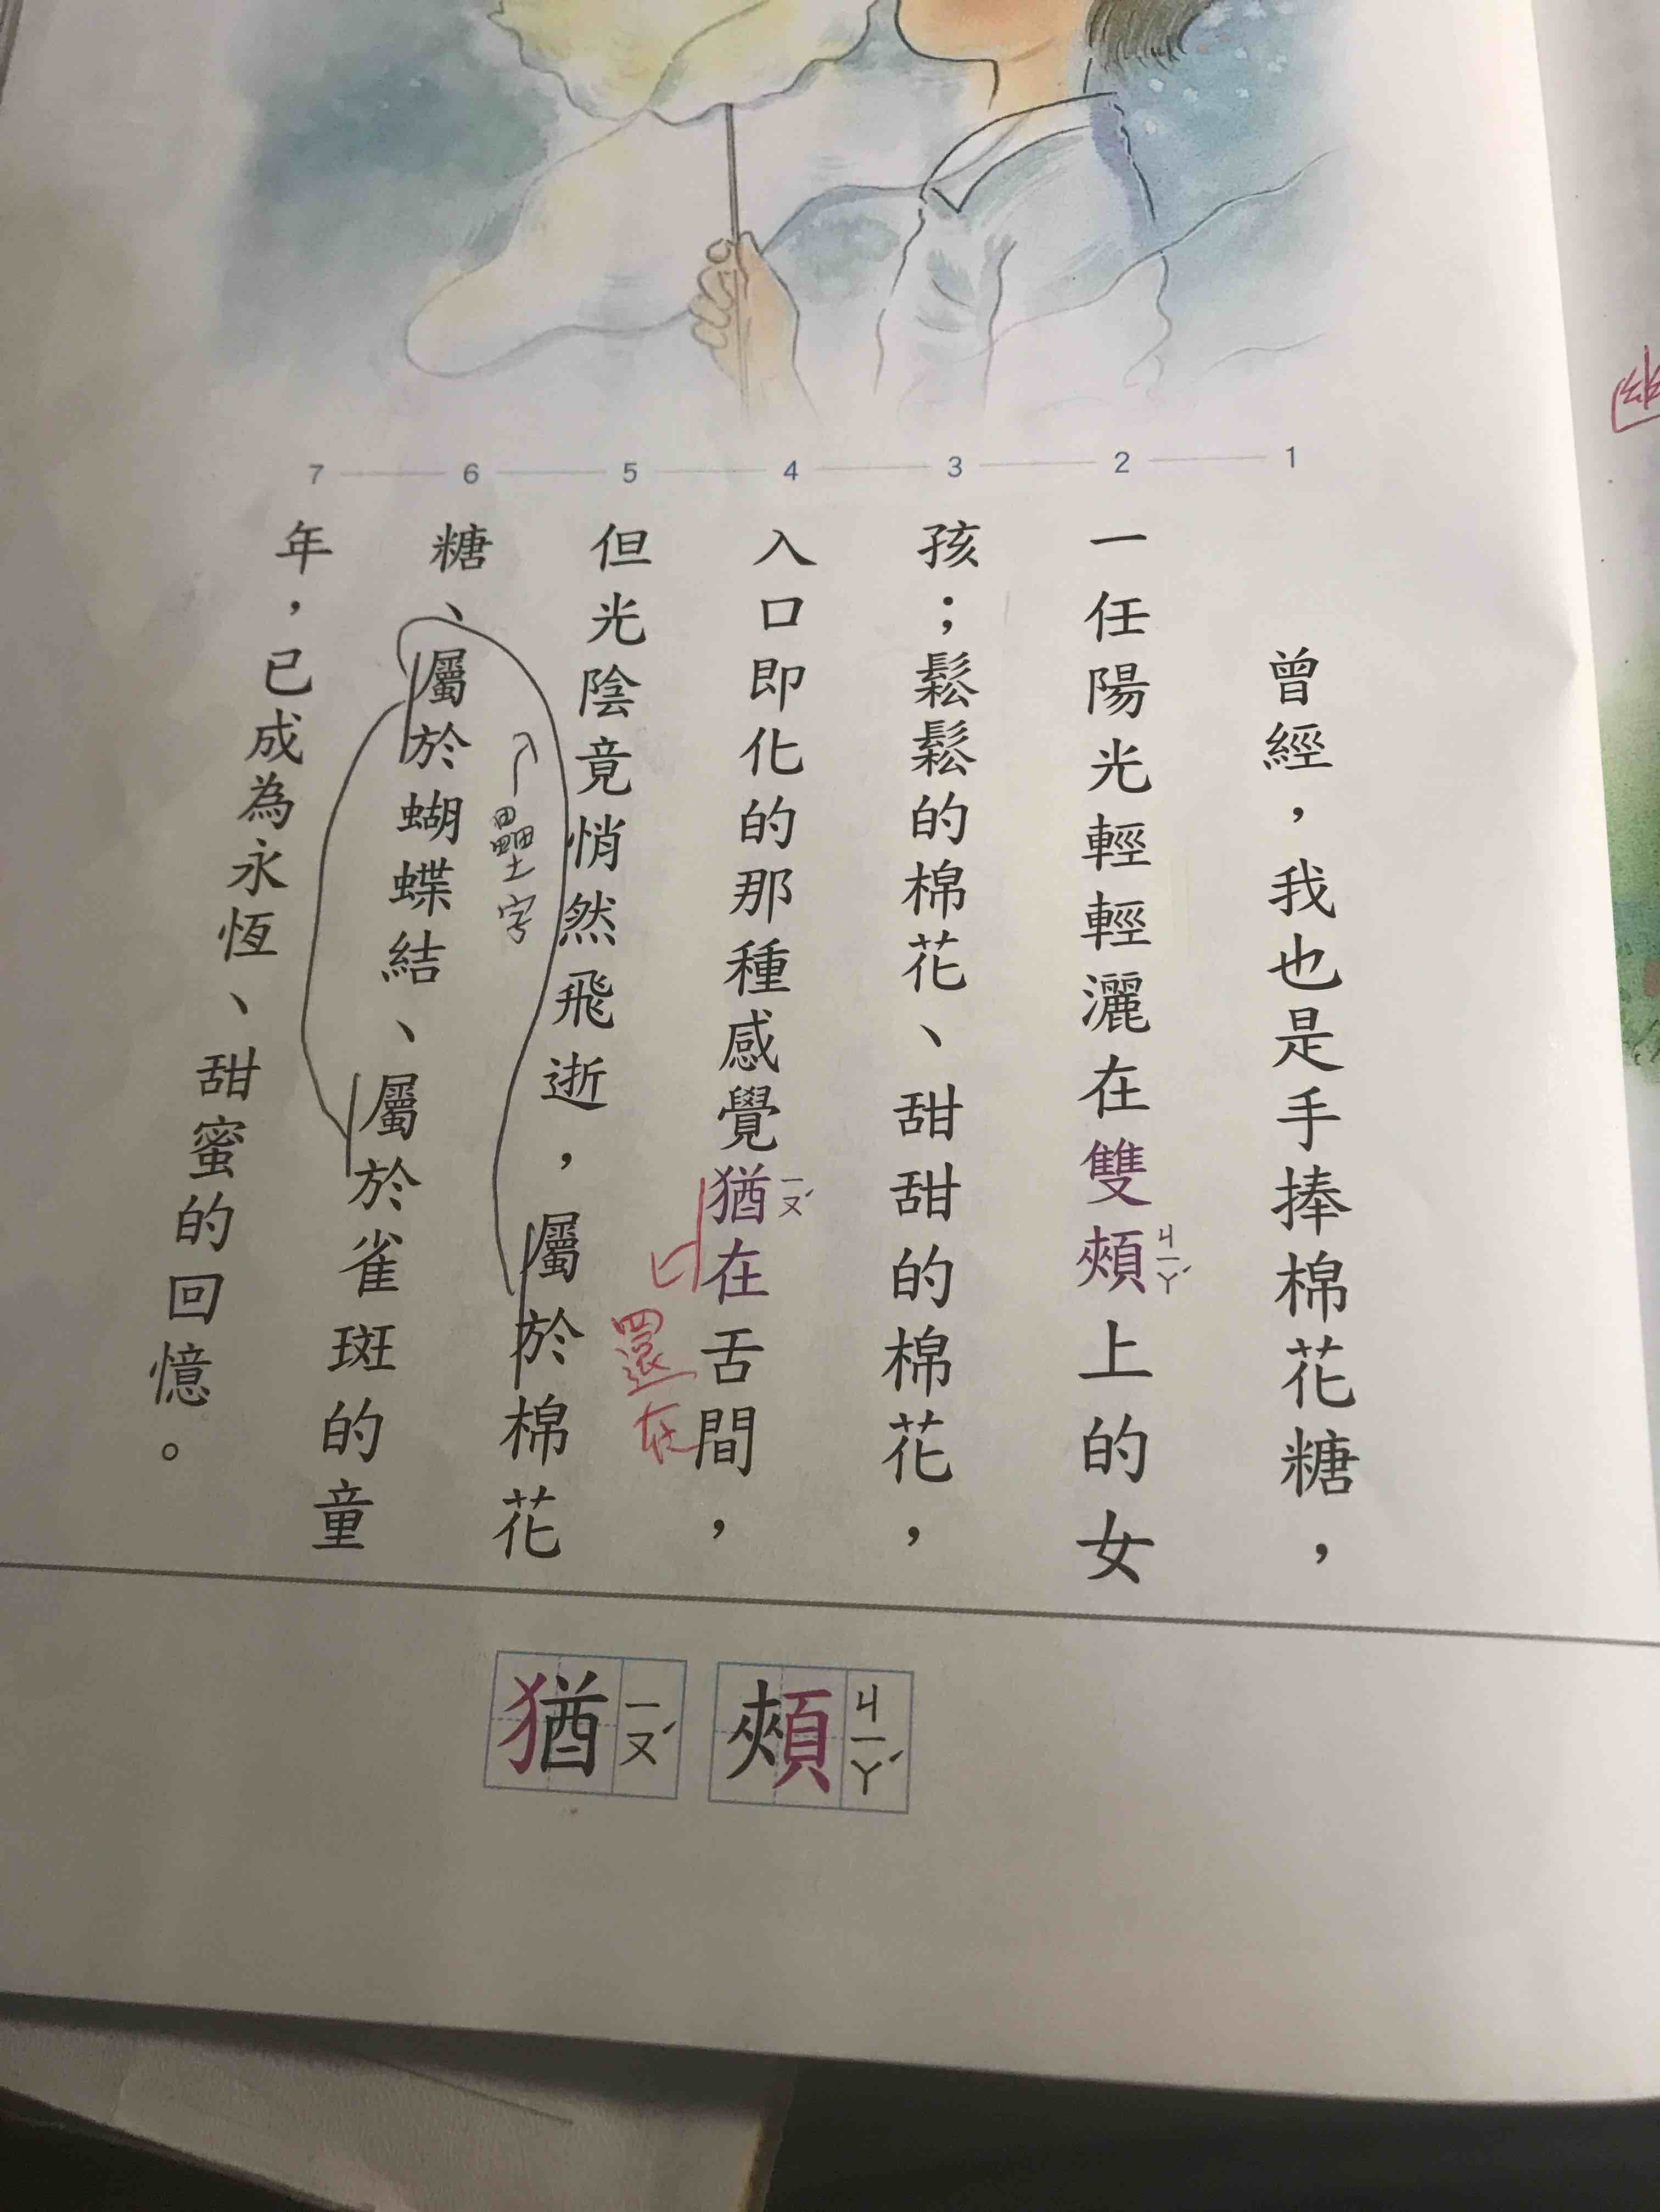 1
2
3
4
5
6
7
曾經，我也是手捧棉花糖，
一任陽光輕輕灑在雙頰上的女
ㄐㄧㄚˊ
孩；鬆鬆的棉花、甜甜的棉花，
入口即化的那種感覺猶在舌間，
ㄧㄡˊ
還在
但光陰竟悄然飛逝，屬於棉花
糖、屬於蝴蝶結、屬於雀斑的童
年，已成為永恆、甜蜜的回憶。
頰 ㄐㄧㄚˊ
猶 ㄧㄡˊ